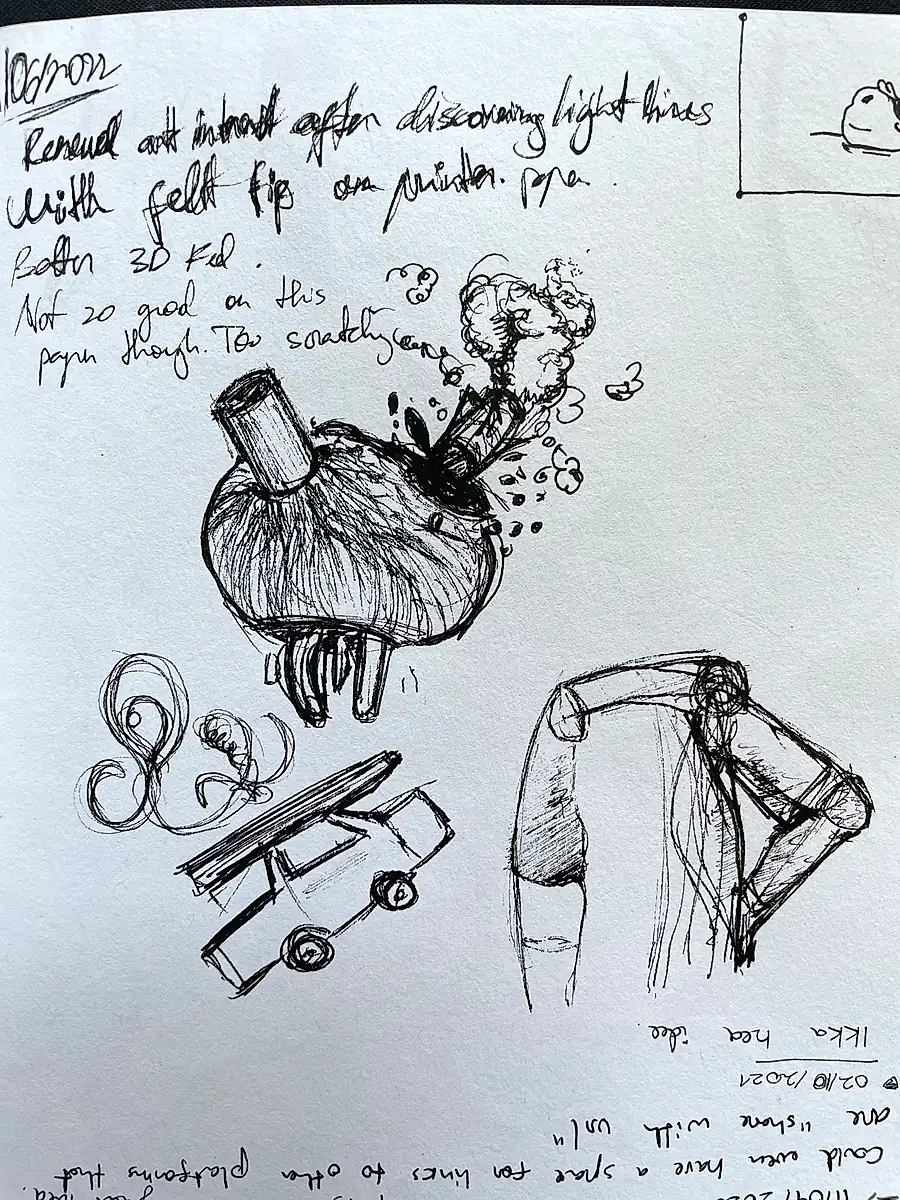 Renewed art interest after discovering light lines
With felt tip on printer paper.
Better 3D Feel.
Not so good on this
paper though. Too scratchy
Ikka hea idee
02/10/2021
are "share with us!"
Could even have a space for links to other platforms that